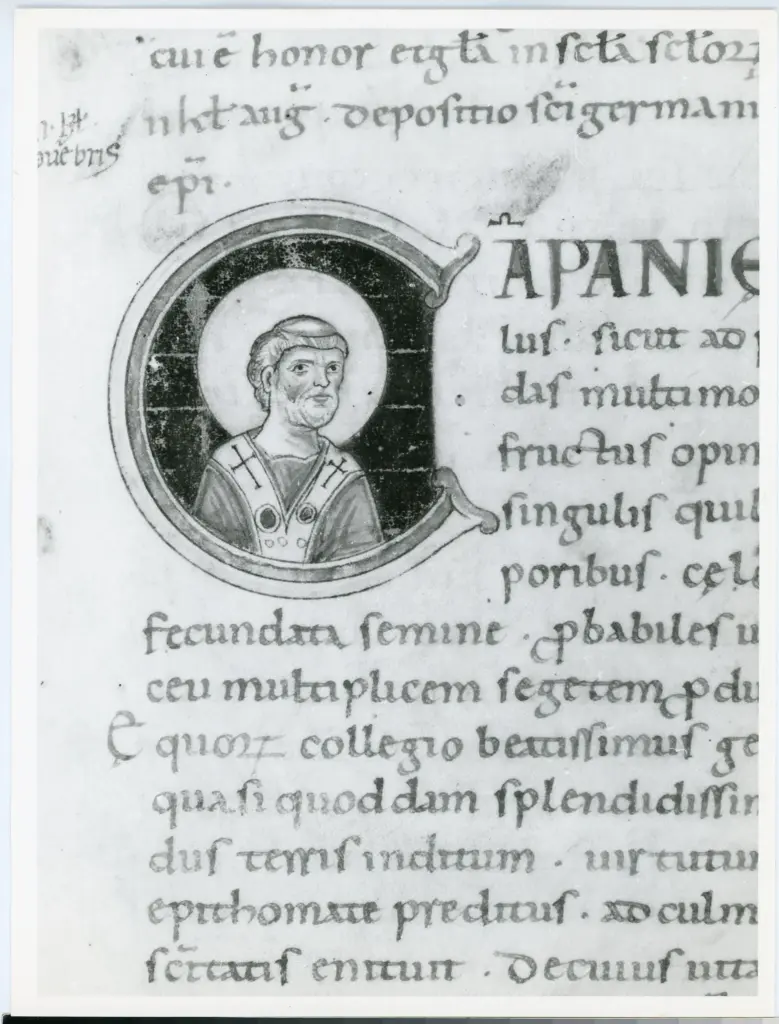 cui ē honor et gl̄a in scl̄a scl̄oꝝ
n kl̄ auḡ. depositio sc̄i germani
ep̄i.
n. kl̄
ouēbris
CĀPANIE
lus. sicut ad
das multimo
fructus opim
singulis quil
poribus. cęle
fecundata semine. ꝓbabiles u
ceu multiplicem segetem ꝓdu
E quoꝝ collegio beatissimus ge
quasi quoddam splendidissim
dus terris inditum. uirtutum
epithomate preditus. ad culm
sc̄itatis enituit. De cuius uita